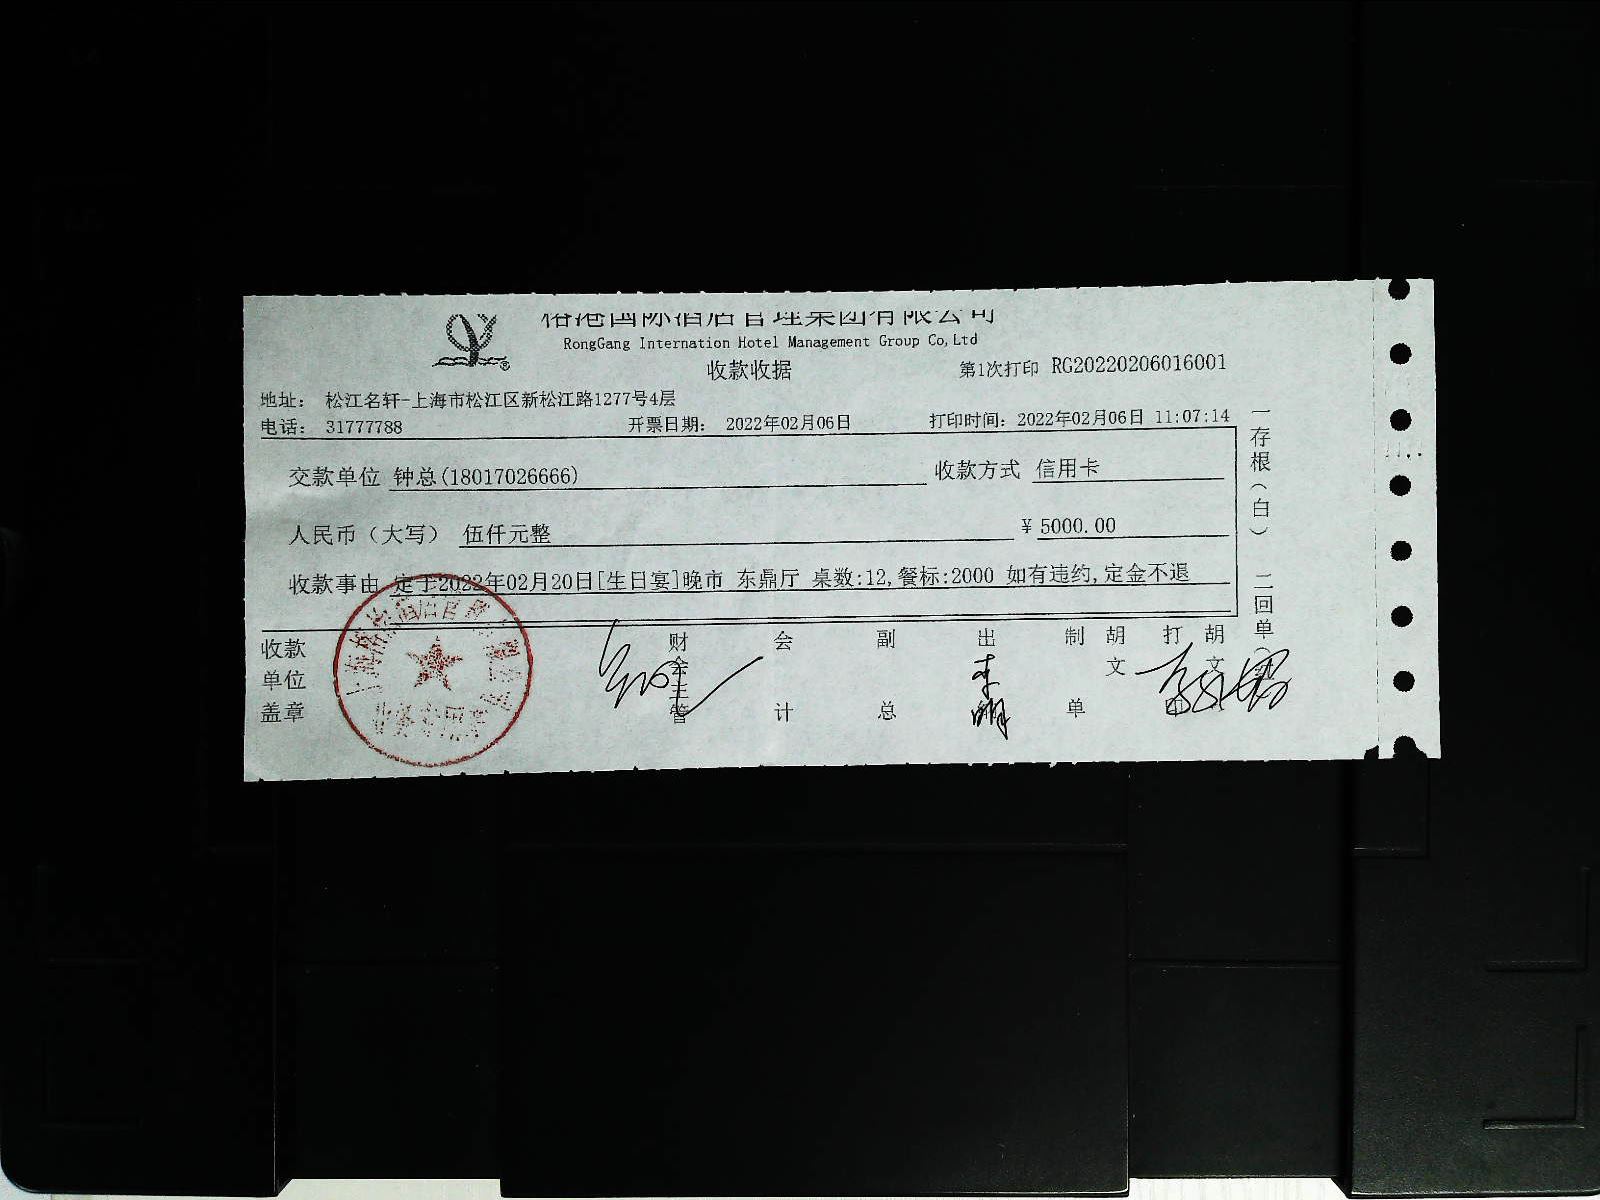 榕港国际酒店管理集团有限公司
RongGang Internation Hotel Management Group Co,Ltd
收款收据
第1次打印 RG20220206016001
地址： 松江名轩-上海市松江区新松江路1277号4层
电话： 31777788 开票日期： 2022年02月06日 打印时间：2022年02月06日 11:07:14
交款单位 钟总(18017026666) 收款方式 信用卡
人民币（大写） 伍仟元整 ¥ 5000.00
收款事由 定于2022年02月20日[生日宴]晚市 东鼎厅 桌数:12,餐标:2000 如有违约,定金不退
收款单位盖章
财会主管
会计
副总
出
制单
胡文
打印
胡文
一存根（白） 二回单（
业务专用章